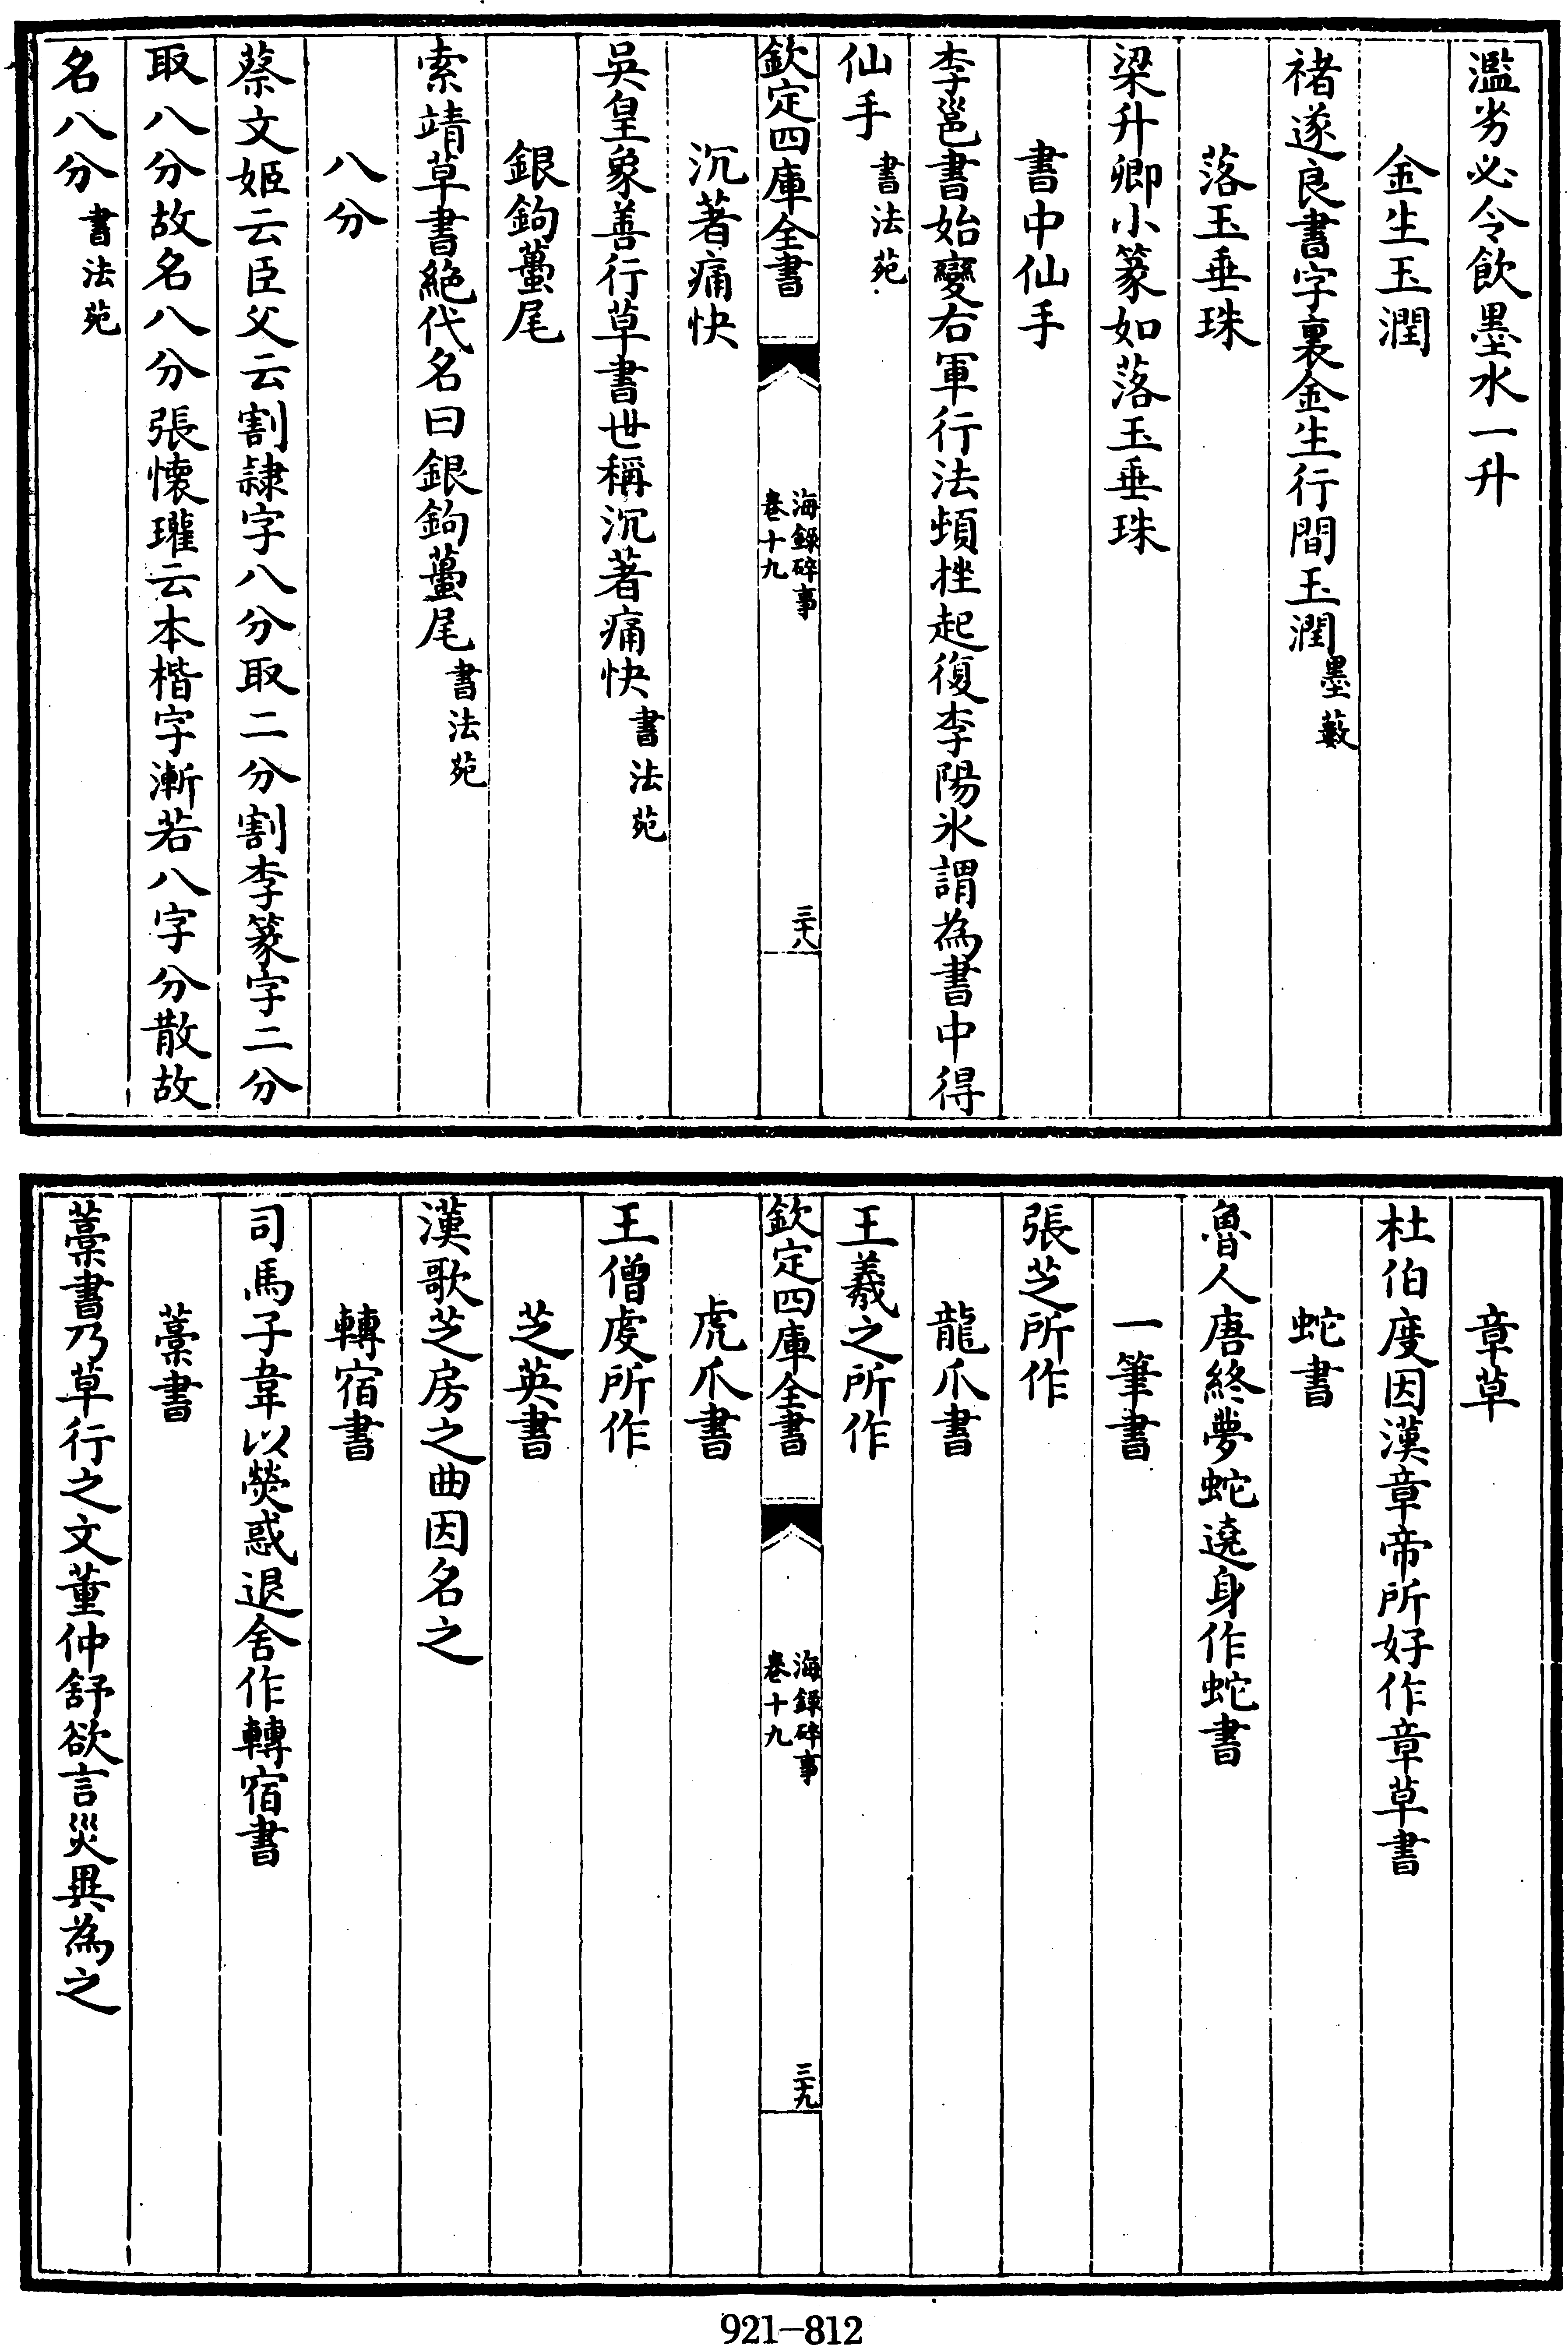 濫劣必令飲墨水一升
金生玉潤
褚遂良書字裏金生行間玉潤墨藪
落玉垂珠
梁升卿小篆如落玉垂珠
書中仙手
李邕書始變右軍行法頓挫起復李陽氷謂為書中得
仙手書法苑
欽定四庫全書
海録碎事
卷十九
三十八
沉著痛快
吳皇象善行草書世稱沉著痛快書法苑
銀鉤蠆尾
索靖草書絕代名曰銀鉤蠆尾書法苑
八分
蔡文姬云臣父云割隷字八分取二分割李篆字二分
取八分故名八分張懷瓘云本楷字漸若八字分散故
名八分書法苑
章草
杜伯度因漢章帝所好作章草書
蛇書
魯人唐終夢蛇遶身作蛇書
一筆書
張芝所作
龍爪書
王羲之所作
欽定四庫全書
海録碎事
卷十九
三十九
虎爪書
王僧虔所作
芝英書
漢歌芝房之曲因名之
轉宿書
司馬子韋以熒惑退舍作轉宿書
藁書
藁書乃草行之文董仲舒欲言災異為之
921-812